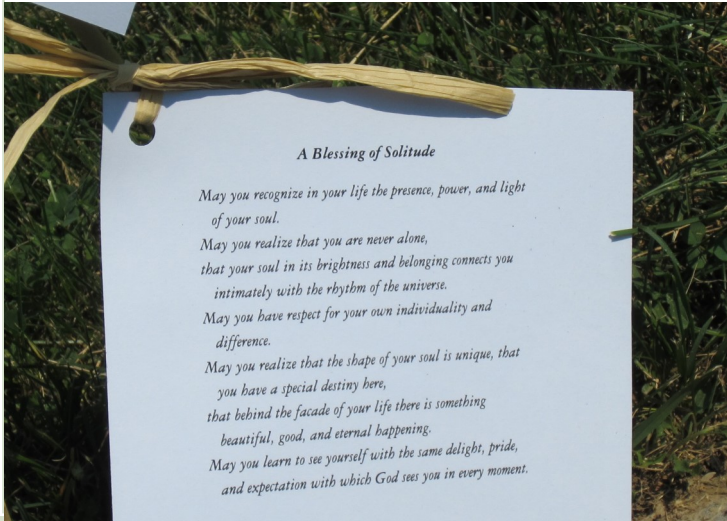 A Blessing of Solitude
May you recognize in your life the presence, power, and light
of your soul.
May you realize that you are never alone,
that your soul in its brightness and belonging connects you
intimately with the rhythm of the universe.
May you have respect for your own individuality and
difference.
May you realize that the shape of your soul is unique, that
you have a special destiny here,
that behind the facade of your life there is something
beautiful, good, and eternal happening.
May you learn to see yourself with the same delight, pride,
and expectation with which God sees you in every moment.